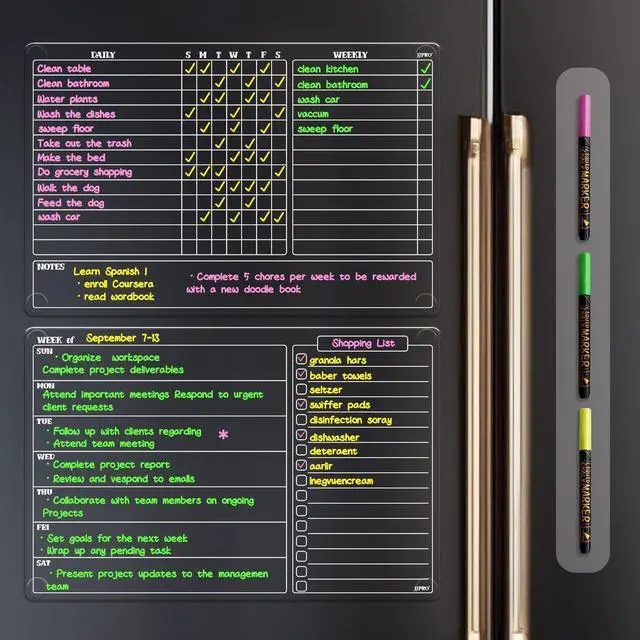 DAILY S M T W T F S
Clean table
Clean bathroom
Water plants
Wash the dishes
sweep floor
Take out the trash
Make the bed
Do grocery shopping
Walk the dog
Feed the dog
wash car
WEEKLY JJPRO
clean kitchen
clean bathroom
wash car
vaccum
sweep floor
NOTES
Learn Spanish !
· enroll Coursera
· read wordbook
· Complete 5 chores per week to be rewarded
with a new doodle book
WEEK of September 7-13
SUN
· Organize workspace
Complete project deliverables
MON
Attend important meetings Respond to urgent
client requests
TUE
· Follow up with clients regarding *
· Attend team meeting
WED
· Complete project report
· Review and vespond to emails
THU
· Collaborate with team members on ongoing
Projects
FRI
· Set goals for the next week
· Wrap up any pending task
SAT
· Present project updates to the managemen
team
Shopping List
granola hars
baber towels
seltzer
swiffer pads
disinfection soray
dishwasher
deteraent
aarlir
inegvuencream
JJPRO
LIQUID MARKER
LIQUID MARKER
LIQUID MARKER